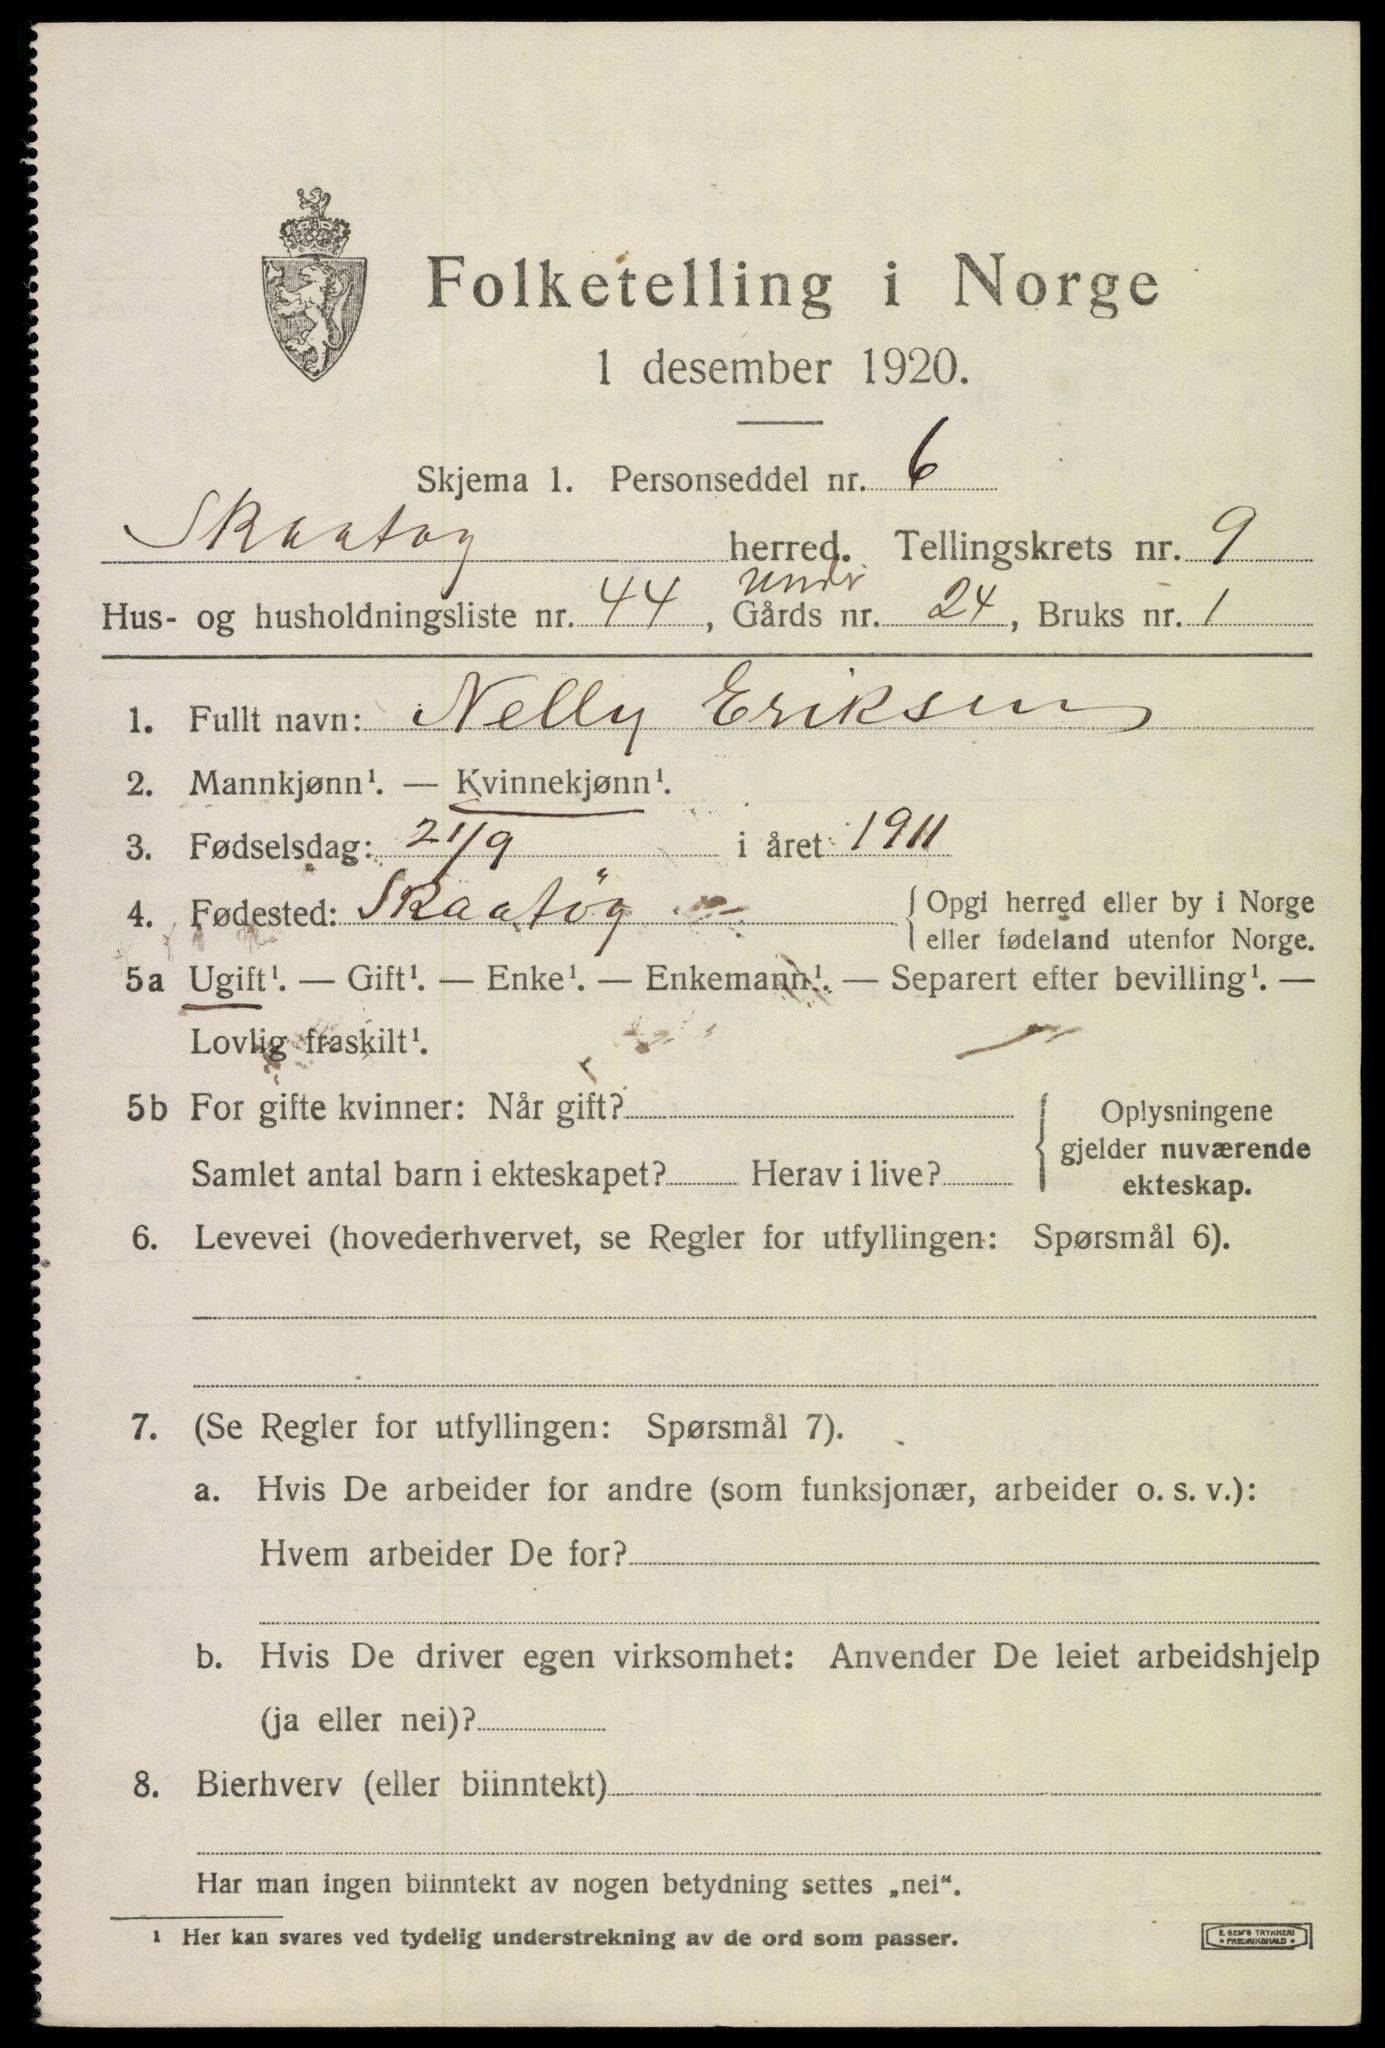 Folketelling i Norge
1 desember 1920.
Skjema 1. Personseddel nr. 6
Skaatøy herred. Tellingskrets nr. 9
under
Hus- og husholdningsliste nr. 44, Gårds nr. 24, Bruks nr. 1
1. Fullt navn: Nelly Eriksen
2. Mannkjønn¹. — Kvinnekjønn¹.
3. Fødselsdag: 21/9 i året 1911
4. Fødested: Skaatöy { Opgi herred eller by i Norge
eller fødeland utenfor Norge.
5a Ugift¹. — Gift¹. — Enke¹. — Enkemann¹. — Separert efter bevilling¹. —
Lovlig fraskilt¹.
5b For gifte kvinner: Når gift?
Samlet antal barn i ekteskapet? Herav i live?
{ Oplysningene
gjelder nuværende
ekteskap.
6. Levevei (hovederhvervet, se Regler for utfyllingen: Spørsmål 6).
7. (Se Regler for utfyllingen: Spørsmål 7).
a. Hvis De arbeider for andre (som funksjonær, arbeider o. s. v.):
Hvem arbeider De for?
b. Hvis De driver egen virksomhet: Anvender De leiet arbeidshjelp
(ja eller nei)?
8. Bierhverv (eller biinntekt)
Har man ingen biinntekt av nogen betydning settes „nei“.
¹ Her kan svares ved tydelig understrekning av de ord som passer.
E. SEM'S TRYKKERI
• FREDRIKSHALD •